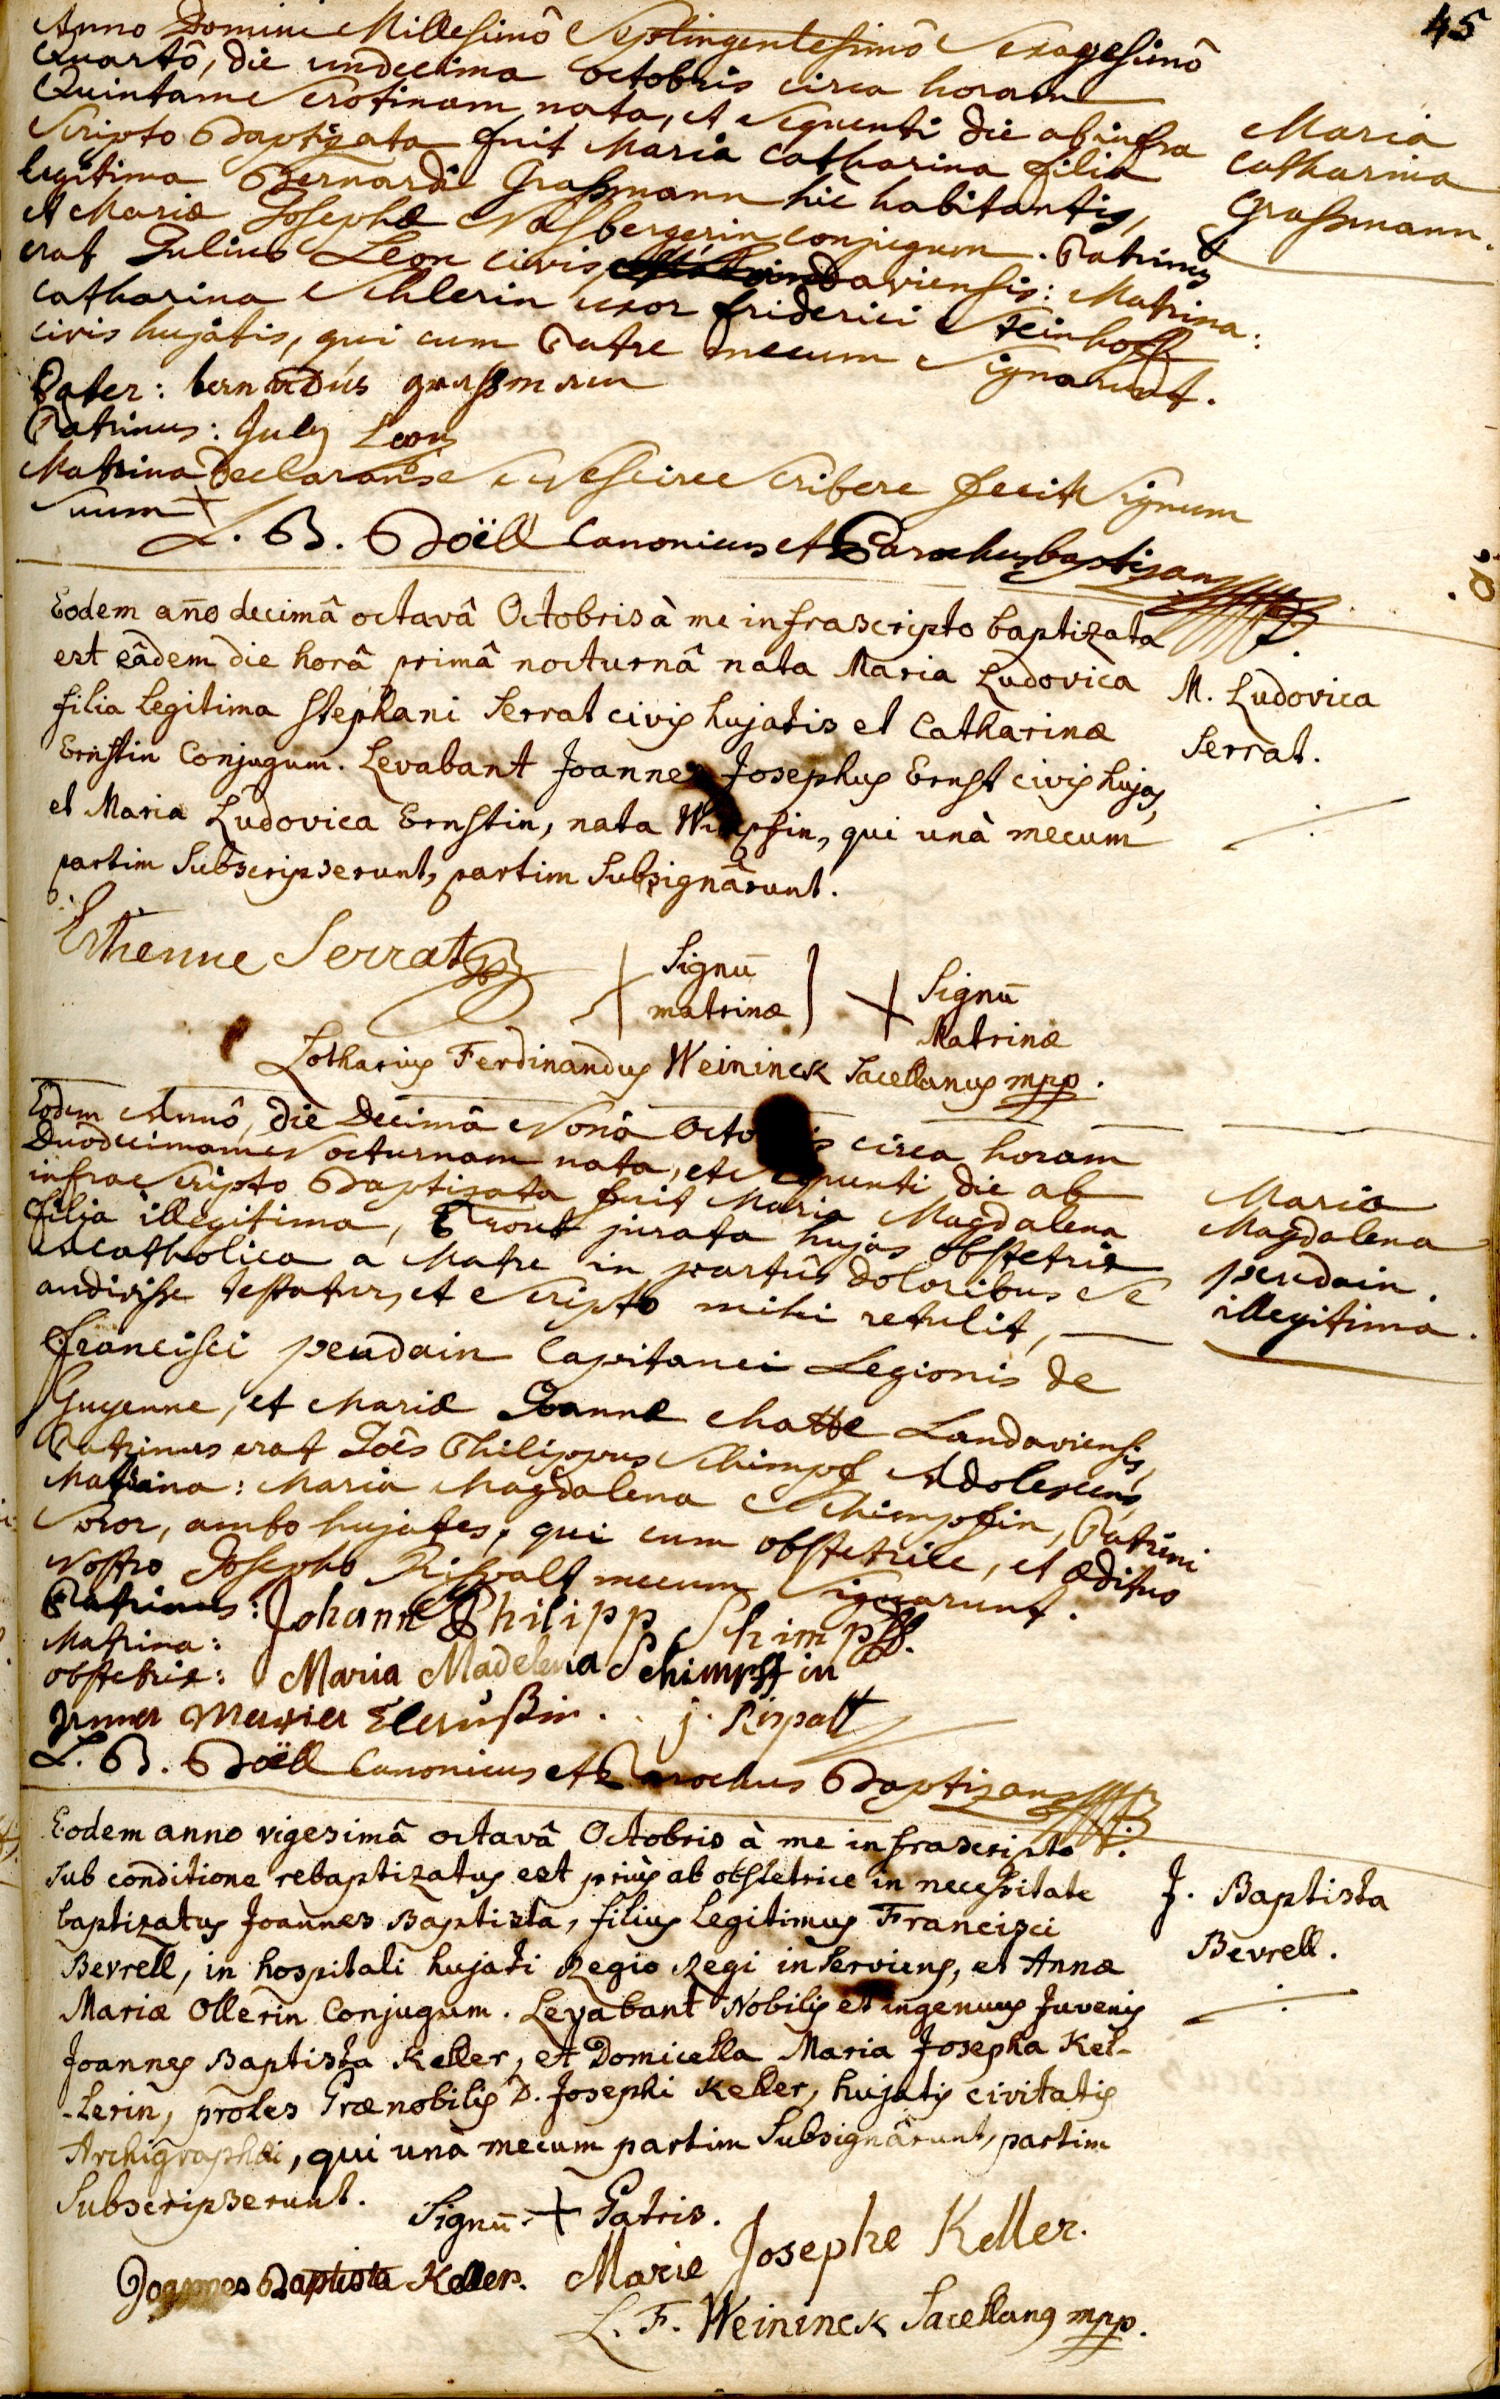 45
Anno Domini Millesimô Septingentesimô Sexagesimô
Quartô, die undecima octobris circa horam
Quintam Serotinam nata, et Sequenti die ab infra
Scripto Baptizata fuit Maria Catharina filia
legitima Bernardi Grasmann hic habitantis,
et Mariæ Josephæ Nasbergerin conjugum. Patrinus
erat Julius Leon civis Landaviensis: Matrina:
Catharina Schlerin uxor friderici Steinhoff
civis hujatis, qui cum Patre mecum Signarunt.
Maria
Catharina
Grasmann.
Pater: bernardus grassmann
Patrinus: July Leon
Matrina Declarans se Nescire Scribere fecit Signum
Suum +
L. B. Boëll Canonicus et Parochus baptizans
Eodem año decimâ octavâ Octobris à me infrascripto baptizata
est eâdem die horâ primâ nocturnâ nata Maria Ludovica
filia legitima Stephani Serrat civis hujatis et Catharinæ
Ernstin Conjugum. Levabant Joannes Josephus Ernst civis hujas,
et Maria Ludovica Ernstin, nata qui unà mecum
partim Subscripserunt, partim Subsignârunt.
M. Ludovica
Serrat.
Estienne Serrat
+ Signū
matrinæ
+ Signū
Matrinæ
Lotharius Ferdinandus Weininck Sacellanus mpp.
Eodem Annô, die Decimâ Nonâ circa horam
Duodecimam Nocturnam nata, et Sequenti die ab
infra Scripto Baptizata fuit Maria Magdalena
filia illegitima, Prout jurata hujas obstetrix
Acatholica a Matre in partûs doloribus Se
audivisse testatur, et Scripto mihi retulit,
francisci peudain Capitanei Legionis de
Guyenne, et Mariæ Joannæ Matte Landaviensis,
Patrinus erat Joês Philippus Schimpf Adolescens
Matrina: Maria Magdalena Schimpfin, Patrini
Soror, ambo hujates, qui cum obstetrice, et ædituo
Nostro Josepho Rispalt mecum Signarunt.
Maria
Magdalena
peudain.
illegitima.
Patrinus: Johann Philipp Schimpff.
Matrina:
obstetrix: Maria Madelena Schimpffin
j. Rispalt
L. B. Boëll Canonicus et Parochus Baptizans
Eodem anno vigesimâ octavâ Octobris à me infrascripto
sub conditione rebaptizatus est priùs ab obstetrice in necessitate
baptizatus Joannes Baptista, filius legitimus Francisci
Bevrell, in hospitali hujati Regio Regi inserviens, et Annæ
Mariæ Ollerin Conjugum. Levabant Nobilis et ingenuus Juvenis
Joannes Baptista Keller, et Domicella Maria Josepha Kel-
-lerin, proles Prænobilis D. Josephi Keller, hujatis civitatis
Archigraphæi, qui unà mecum partim Subsignârunt, partim
Subscripserunt.
J. Baptista
Bevrell.
Signū + Patris.
Joannes Baptista Keller. Marie Josephe Keller.
L. F. Weininck Sacellanus mpp.